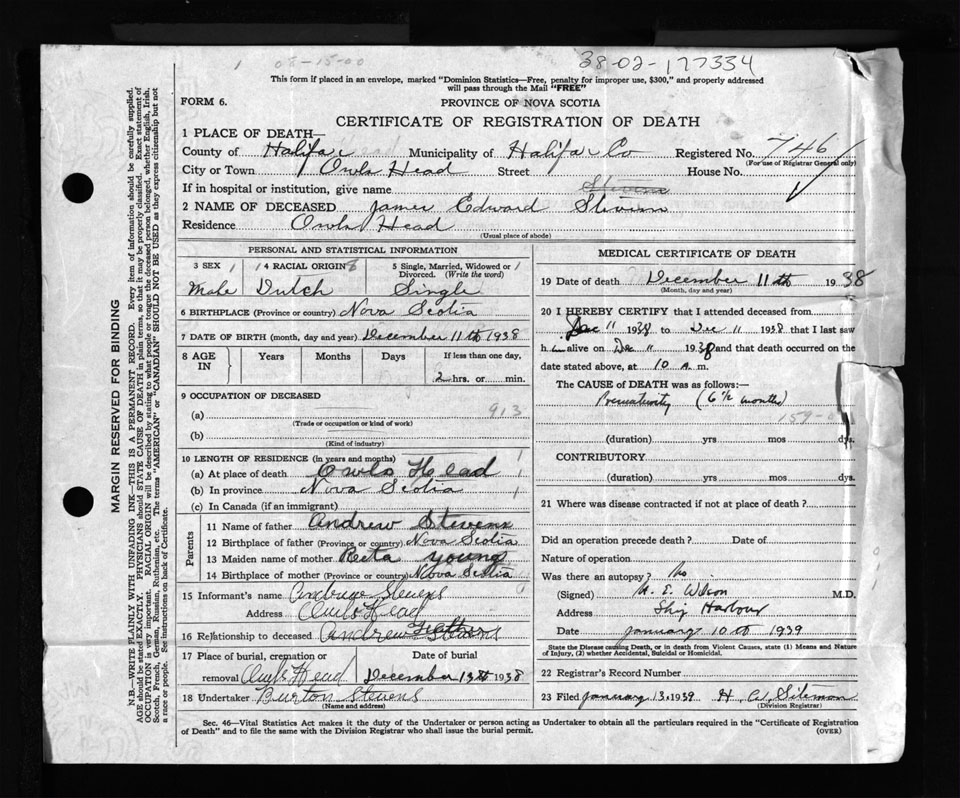 38-02-177334
1 02-15-00
This form if placed in an envelope, marked "Dominion Statistics—Free, penalty for improper use, $300," and properly addressed
will pass through the Mail "FREE"
FORM 6.
PROVINCE OF NOVA SCOTIA
CERTIFICATE OF REGISTRATION OF DEATH
1 PLACE OF DEATH—
County of Halifax Municipality of Halifax Co Registered No. 746
(For use of Registrar General only)
City or Town Owls Head Street House No.
If in hospital or institution, give name Stevens
2 NAME OF DECEASED James Edward Stevens
Residence Owls Head
(Usual place of abode)
PERSONAL AND STATISTICAL INFORMATION
3 SEX 4 RACIAL ORIGIN 5 Single, Married, Widowed or
Divorced. (Write the word)
Male Dutch Single
6 BIRTHPLACE (Province or country) Nova Scotia
7 DATE OF BIRTH (month, day and year) December 11th 1938
8 AGE IN Years Months Days If less than one day,
2 hrs. or min.
9 OCCUPATION OF DECEASED
(a) 913
(Trade or occupation or kind of work)
(b)
(Kind of industry)
10 LENGTH OF RESIDENCE (in years and months)
(a) At place of death Owls Head
(b) In province Nova Scotia
(c) In Canada (if an immigrant)
Parents
11 Name of father Andrew Stevens
12 Birthplace of father (Province or country) Nova Scotia
13 Maiden name of mother Reta Young
14 Birthplace of mother (Province or country) Nova Scotia
15 Informant's name Andrew Stevens
Address Owls Head
16 Relationship to deceased Andrew Stevens Father
17 Place of burial, cremation or Date of burial
removal Owls Head December 13th 1938
18 Undertaker Burton Stevens
(Name and address)
MEDICAL CERTIFICATE OF DEATH
19 Date of death December 11th 1938
(Month, day and year)
20 I HEREBY CERTIFY that I attended deceased from
Dec 11 1938 to Dec 11 1938 that I last saw
h im alive on Dec 11 1938 and that death occurred on the
date stated above, at 10 a. m.
The CAUSE OF DEATH was as follows:—
Prematurity (6½ months)
159-
(duration) yrs mos dys.
CONTRIBUTORY
(duration) yrs mos dys.
21 Where was disease contracted if not at place of death?
Did an operation precede death? Date of
Nature of operation
Was there an autopsy? No
(Signed) Wilson M.D.
Address Ship Harbour
Date January 10th 1939
State the Disease causing Death, or in death from Violent Causes, state (1) Means and Nature
of Injury, (2) whether Accidental, Suicidal or Homicidal.
22 Registrar's Record Number
23 Filed January 13 1939 H. C. Siteman
(Division Registrar)
Sec. 46—Vital Statistics Act makes it the duty of the Undertaker or person acting as Undertaker to obtain all the particulars required in the "Certificate of Registration
of Death" and to file the same with the Division Registrar who shall issue the burial permit.
(OVER)
MARGIN RESERVED FOR BINDING
N.B.—WRITE PLAINLY WITH UNFADING INK—THIS IS A PERMANENT RECORD. Every item of information should be carefully supplied.
AGE should be stated EXACTLY. PHYSICIANS should STATE CAUSE OF DEATH in plain terms, so that it may be properly classified. Exact statement of
OCCUPATION is very important. RACIAL ORIGIN will be described by stating to what people or tongue the deceased person belonged, whether English, Irish,
Scotch, French, German, Russian, Ruthenian, etc. The terms "AMERICAN" or "CANADIAN" SHOULD NOT BE USED as they express citizenship but not
a race or people. See instructions on back of Certificate.